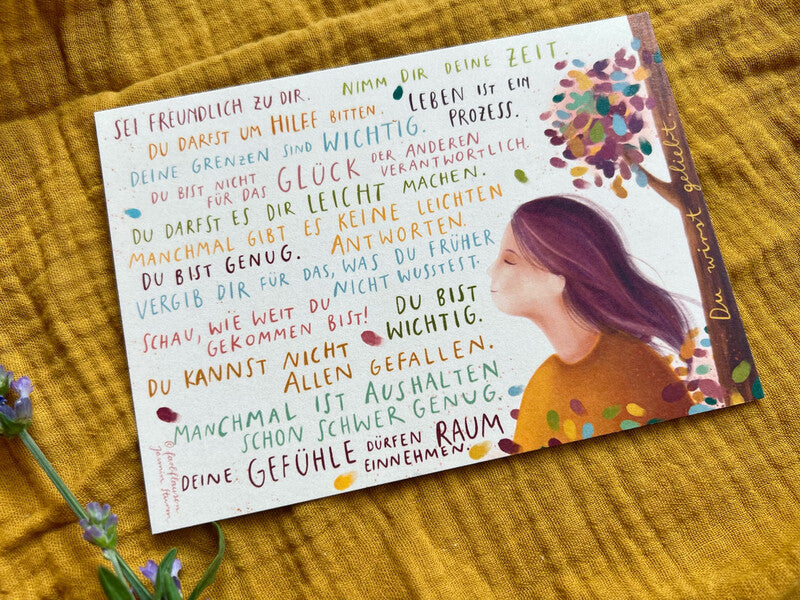 SEI FREUNDLICH ZU DIR.
NIMM DIR DEINE ZEIT.
DU DARFST UM HILFE BITTEN.
LEBEN IST EIN
PROZESS.
DEINE GRENZEN SIND WICHTIG.
DU BIST NICHT
FÜR DAS GLÜCK DER ANDEREN
VERANTWORTLICH.
DU DARFST ES DIR LEICHT MACHEN.
MANCHMAL GIBT ES KEINE LEICHTEN
ANTWORTEN.
DU BIST GENUG.
VERGIB DIR FÜR DAS, WAS DU FRÜHER
NICHT WUSSTEST.
SCHAU, WIE WEIT DU
GEKOMMEN BIST!
DU BIST
WICHTIG.
DU KANNST NICHT
ALLEN GEFALLEN.
MANCHMAL IST AUSHALTEN
SCHON SCHWER GENUG.
DEINE GEFÜHLE DÜRFEN RAUM
EINNEHMEN.
Du wirst geliebt.
©
Jasmin Sturm